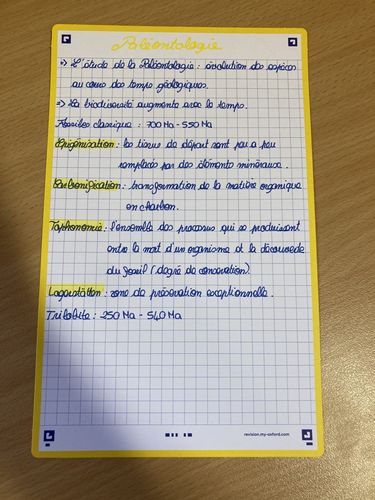 Paléontologie
=) L'étude de la Paléontologie : évolution des espèces
au cours des temps géologiques.
=) La biodiversité augmente avec le temps.
Fossiles classique : 700 Ma - 550 Ma
Epigénisation : les tissus de départ sont peu a peu
remplacés par des éléments minéraux.
Carbonification : transformation de la matière organique
en charbon.
Taphonomie : l'ensemble des processus qui se produisent
entre la mort d'un organisme et la découverte
du fossil (degré de conservation).
Lagerstätten : zone de préservation exceptionnelle.
Trilobite : 250 Ma - 540 Ma
revision.my-oxford.com